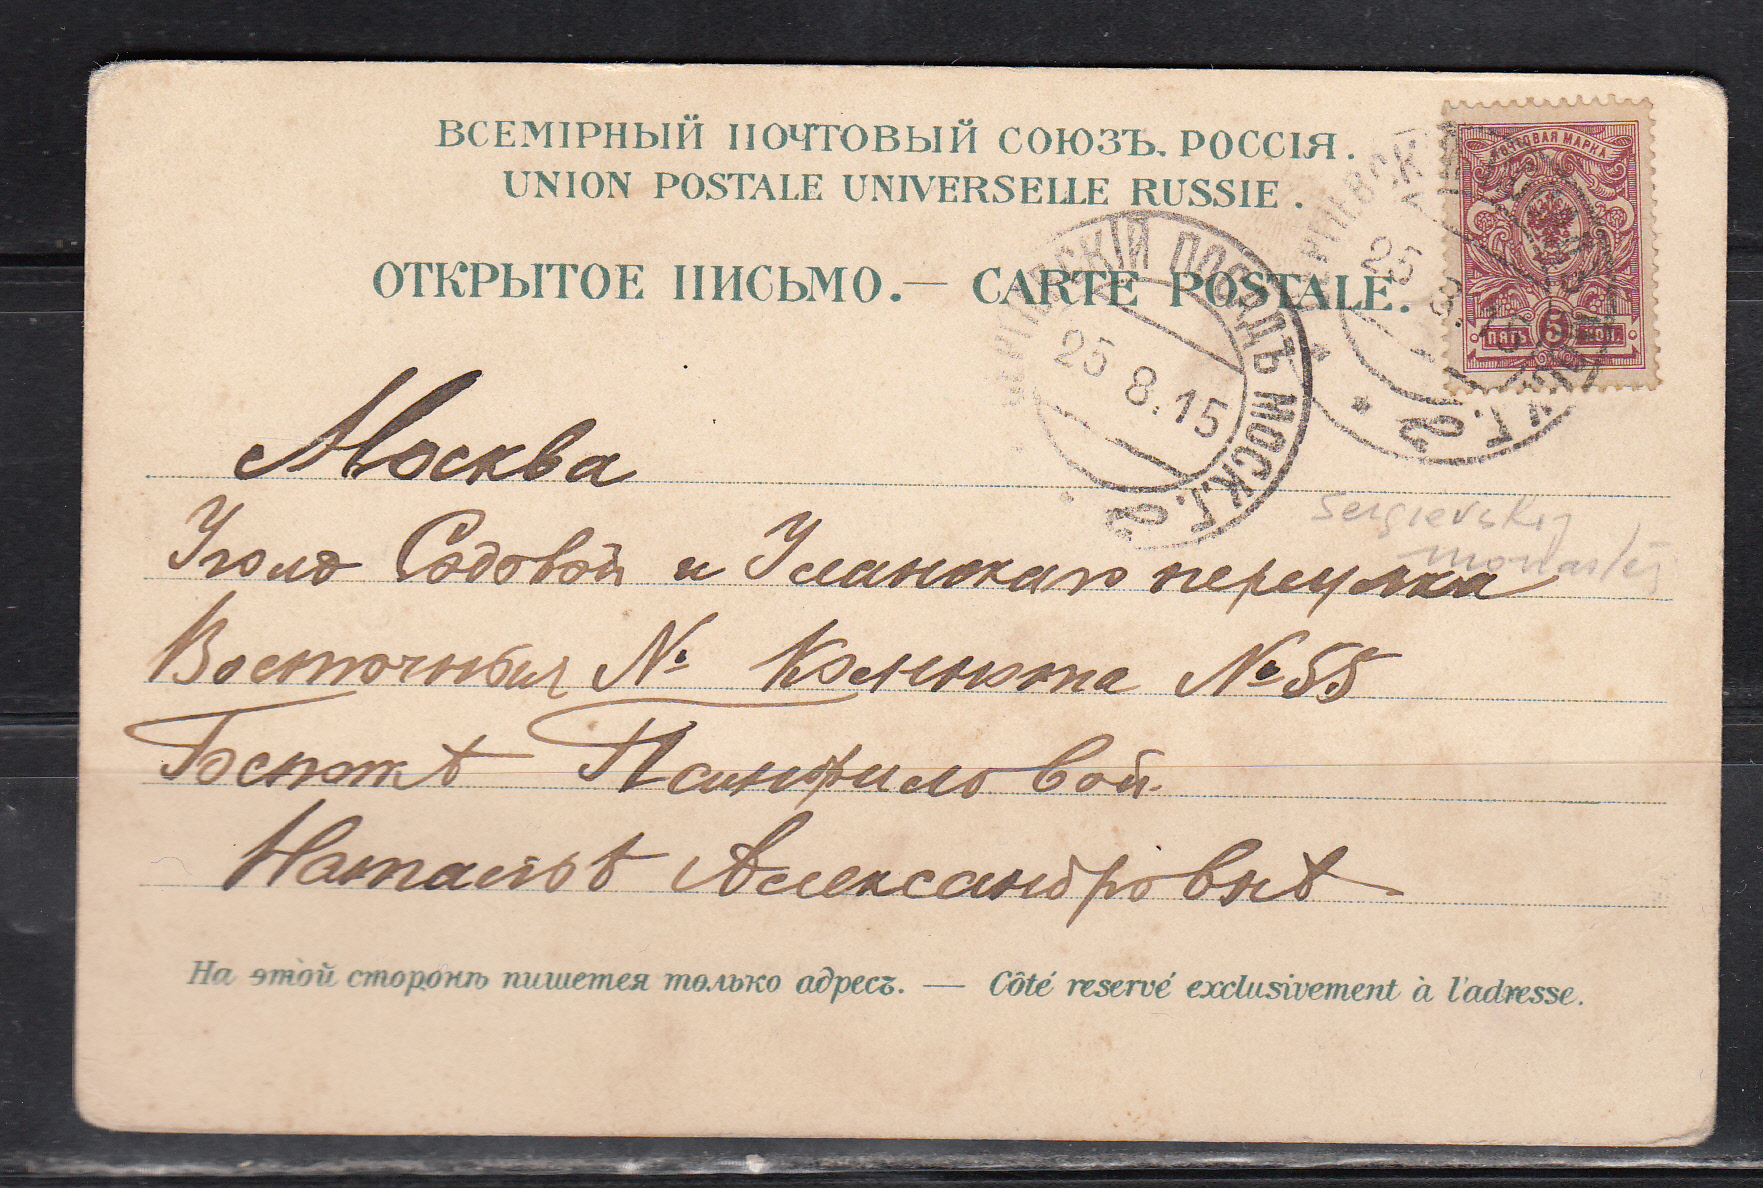 ВСЕМІРНЫЙ ПОЧТОВЫЙ СОЮЗЪ. РОССІЯ.
UNION POSTALE UNIVERSELLE RUSSIE.
ОТКРЫТОЕ ПИСЬМО.— CARTE POSTALE.
ПОЧТОВАЯ МАРКА
ПЯТЬ 5 КОП.
СЕРГІЕВСКІЙ ПОСАДЪ МОСК.Г.
25 8.15
2
25 8.15
2
Sergievskij
monastery
Москва
Уголъ Садовой и Уланскаго переулка
Восточныя № Комната № 55
Госпожѣ Панфиловой
Натальѣ Александровнѣ
На этой сторонѣ пишется только адресъ. — Côté reservé exclusivement à l'adresse.